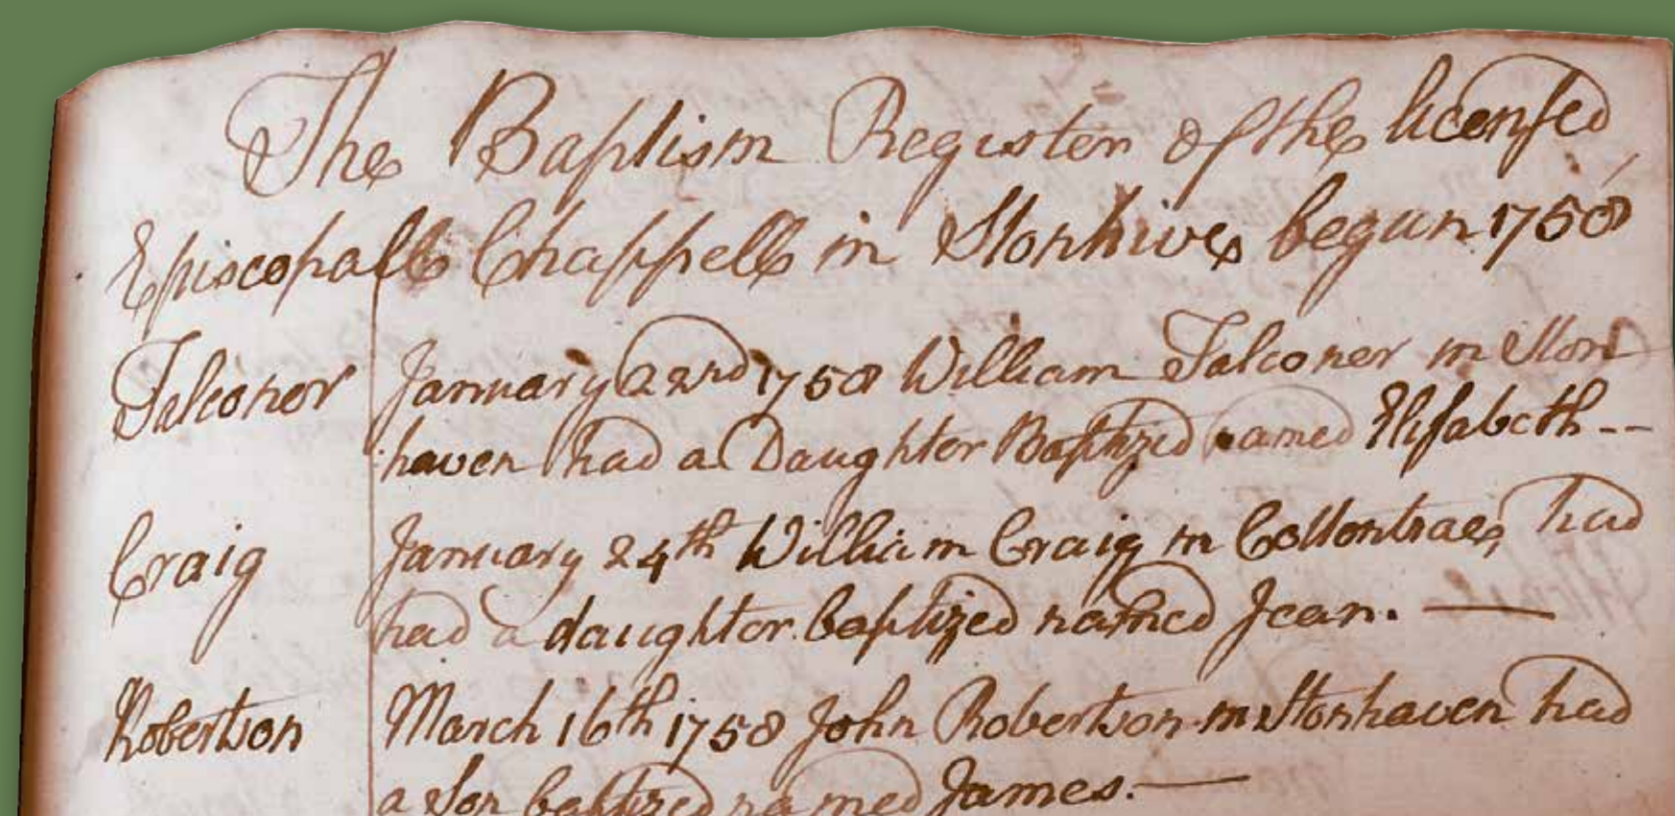 The Baptism Register of the licensed
Episcopall Chappell in Stonhive begun 1758
Falconor January 22nd 1758 William Falconer in Ston
haven had a Daughter Baptized named Elisabeth --
Craig January 24th William Craig in Cottontrae, had
had a daughter baptized named Jean. —
Robertson March 16th 1758 John Robertson in Stonhaven had
a Son baptized named James. —